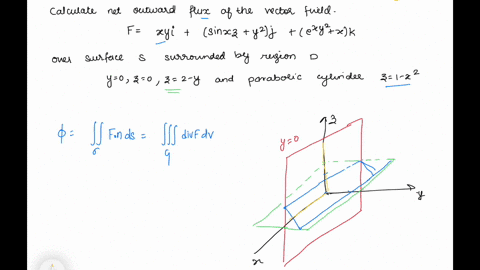 Calculate net outward flux of the vector field.
F= xyi + (sinxz + y²)j + (e^xy² + x)k
over surface S surrounded by region D
y=0, z=0, z=2-y and parabolic cylinder z=1-x²
ϕ = ∬ F.n ds = ∭ divF dv
σ G
z
y=0
y
x